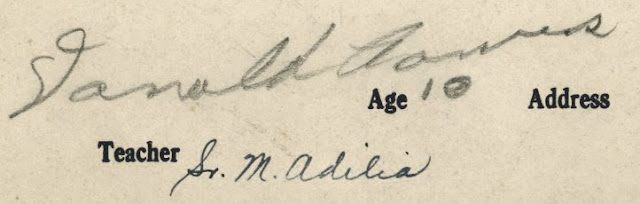 Donald
Age 10 Address
Teacher Sr. M. Adilia